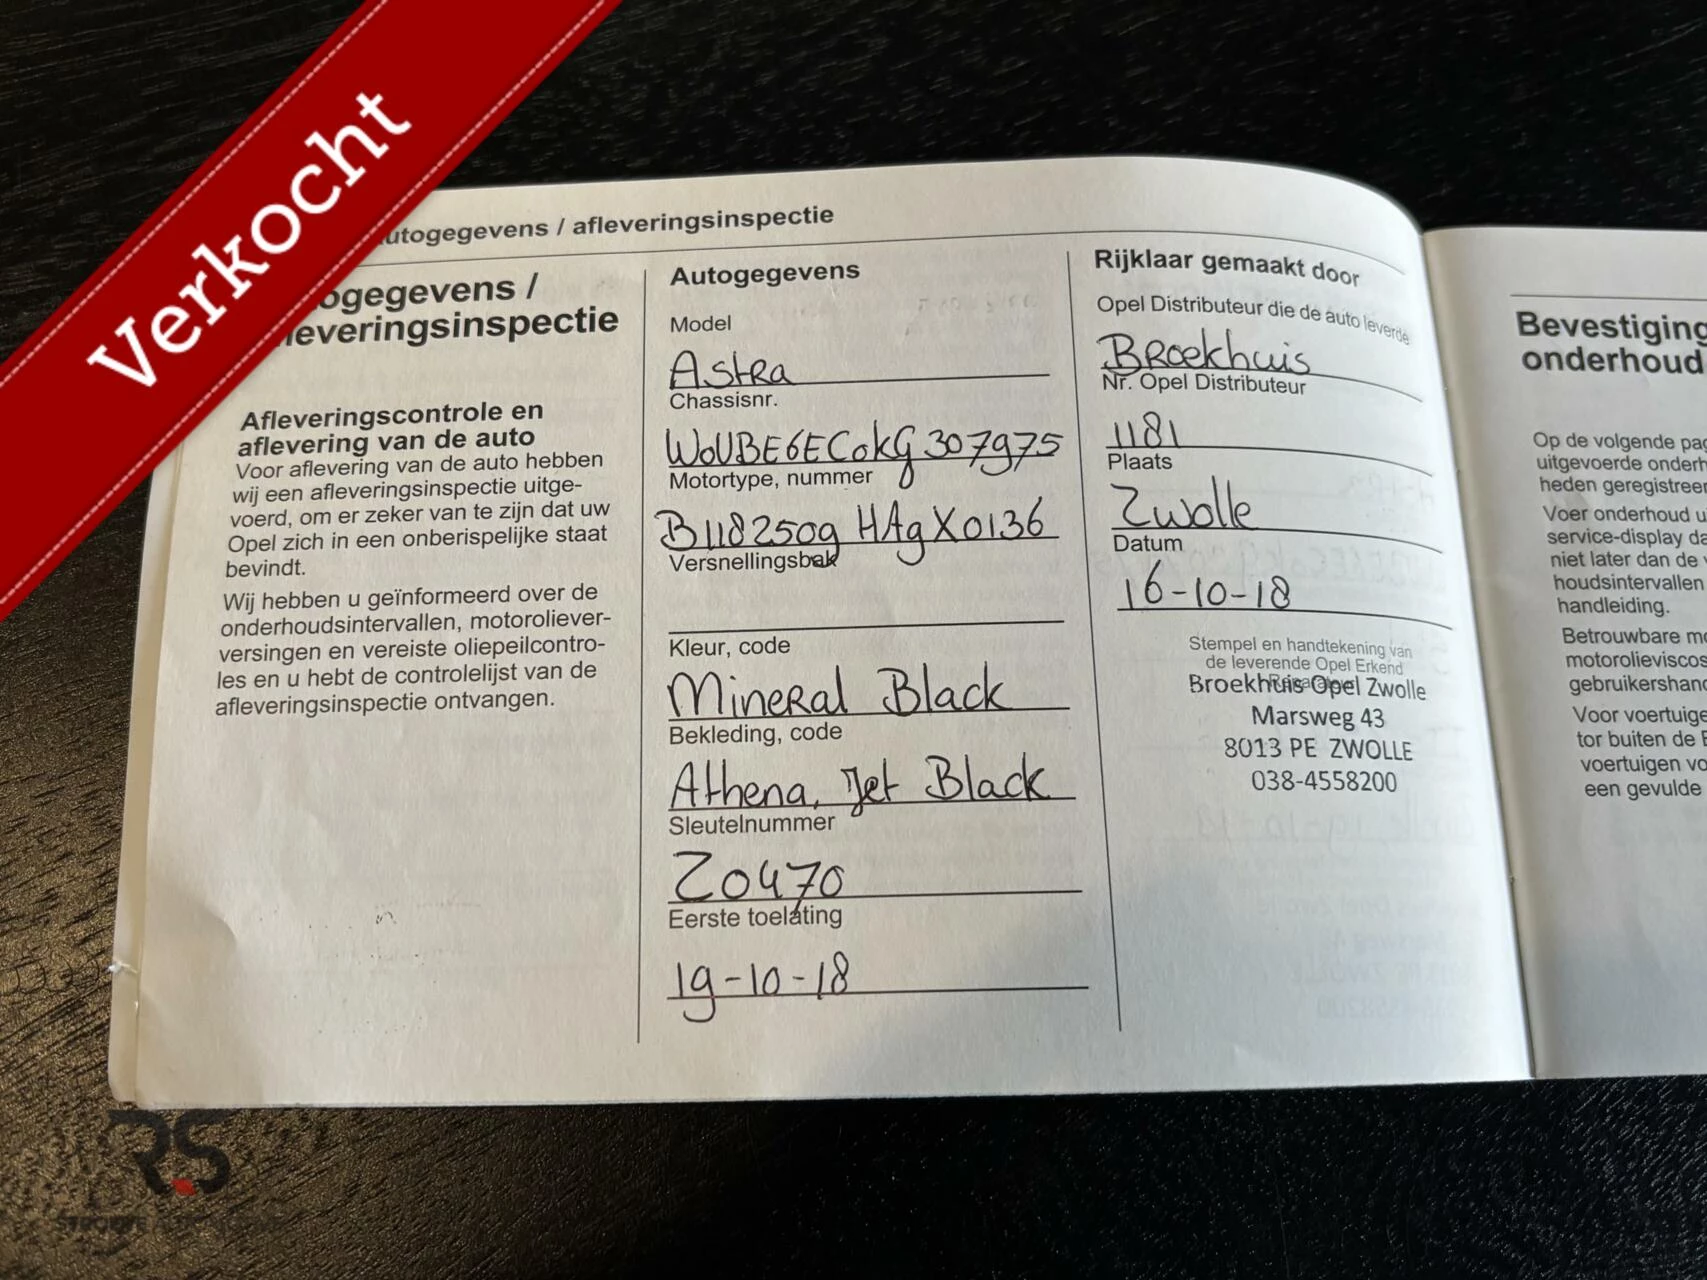 Verkocht
utogegevens / afleveringsinspectie
ogegevens /
leveringsinspectie
Afleveringscontrole en
aflevering van de auto
Voor aflevering van de auto hebben
wij een afleveringsinspectie uitge-
voerd, om er zeker van te zijn dat uw
Opel zich in een onberispelijke staat
bevindt.
Wij hebben u geïnformeerd over de
onderhoudsintervallen, motoroliever-
versingen en vereiste oliepeilcontro-
les en u hebt de controlelijst van de
afleveringsinspectie ontvangen.
Autogegevens
Model
Astra
Chassisnr.
W0UBE6EC0kG307975
Motortype, nummer
B118250g HAgX0136
Versnellingsbak
Kleur, code
Mineral Black
Bekleding, code
Athena, Jet Black
Sleutelnummer
Z0470
Eerste toelating
19-10-18
Rijklaar gemaakt door
Opel Distributeur die de auto leverde
Broekhuis
Nr. Opel Distributeur
1181
Plaats
Zwolle
Datum
16-10-18
Stempel en handtekening van
de leverende Opel Erkend
Broekhuis Opel Zwolle
Marsweg 43
8013 PE ZWOLLE
038-4558200
Bevestiging
onderhoud
Op de volgende pag
uitgevoerde onderh
heden geregistreer
Voer onderhoud u
service-display da
niet later dan de v
houdsintervallen
handleiding.
Betrouwbare mo
motorolieviscos
gebruikershand
Voor voertuige
tor buiten de E
voertuigen vo
een gevulde
RS